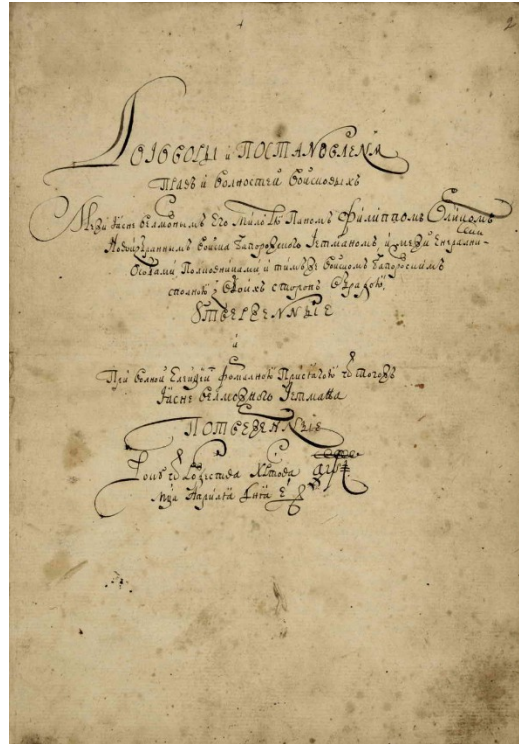 2
ДОГОВОРЫ и ПОСТАНОВЛЕНѦ
Правъ и волностей войсковыхъ
Межи Ясне велможнымъ Его Милостю Паномъ Филиппомъ Орликомъ
Новоизбраннымъ войска Запорозкого Гетманомъ, и межи Енерални-
ми
Особами Полковниками и тимъже войскомъ Запорозскимъ
сполною з обоихъ сторонъ обрадою
УТВЕРЖЕННЫЕ
и
При волной Елекцій формалною Присягою ѿ тогожъ
Ясне велможного Гетмана
ПОТВЕРЖЕННЫЕ
Року ѿ Рождества Христова ҂аѱі
Мца Априлѧ дня е҃